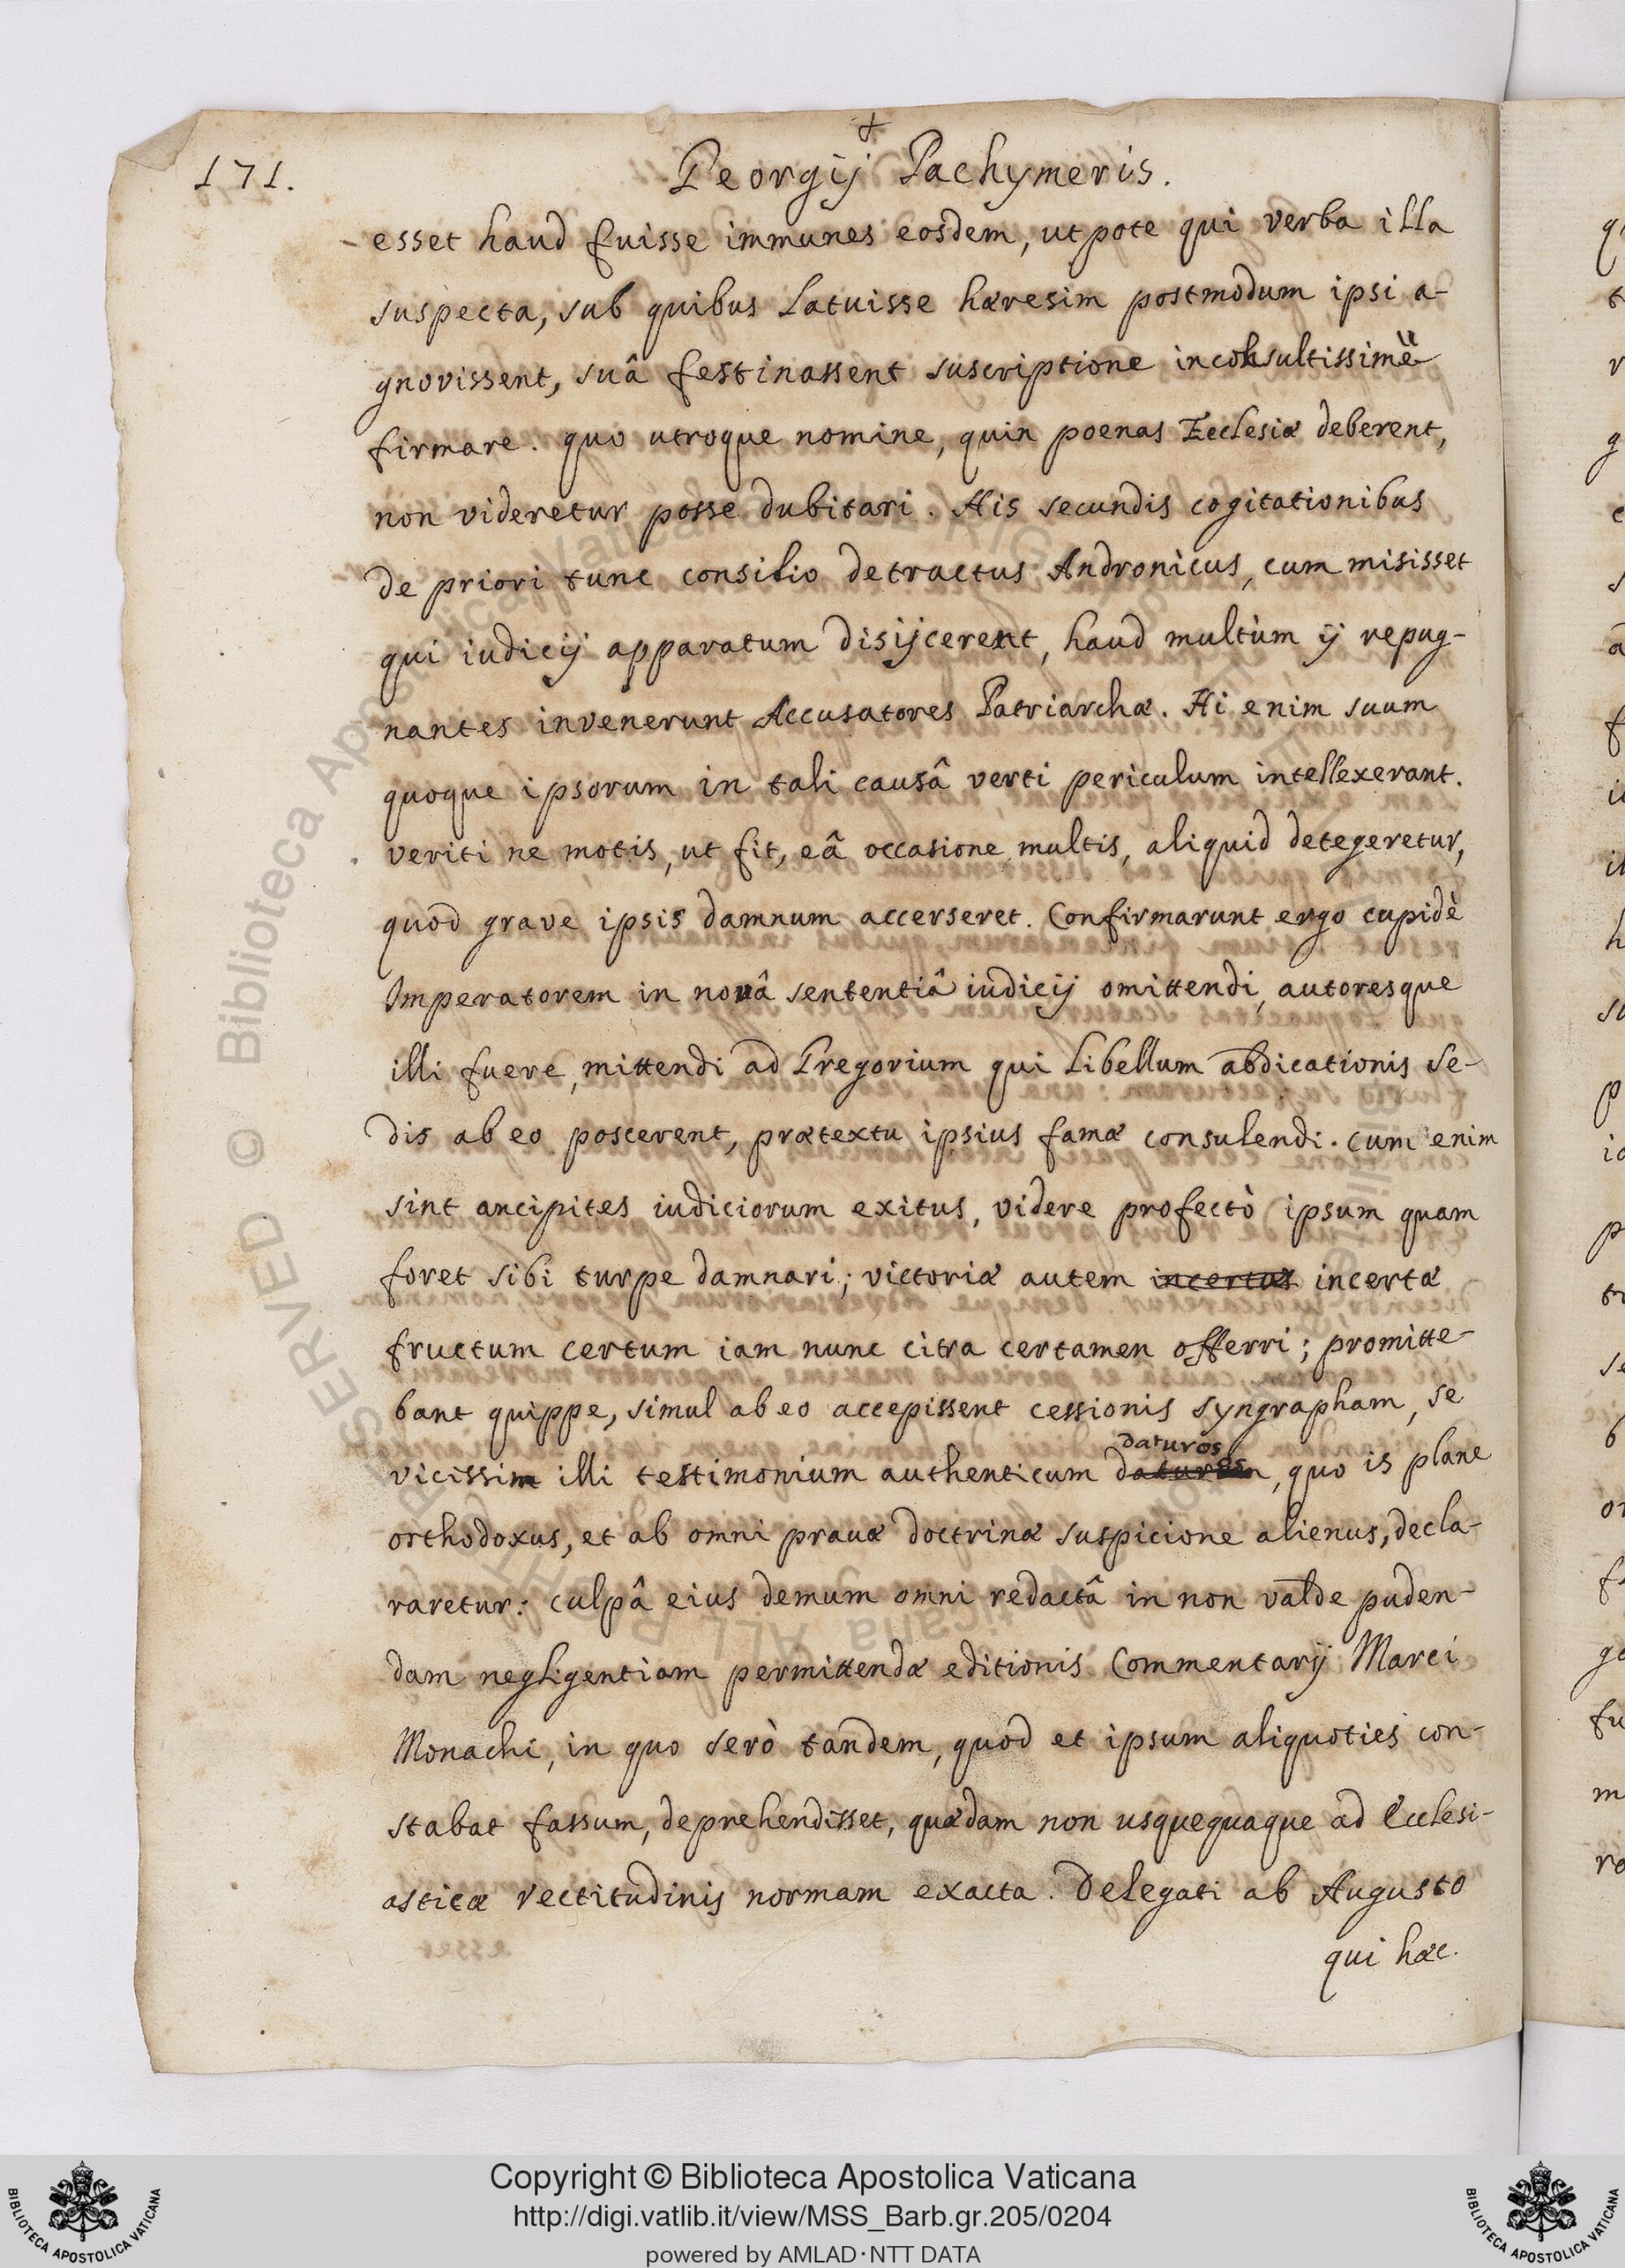 +
171. Georgij Pachymeris.
esset haud fuisse immunes eosdem, utpote qui verba illa
suspecta, sub quibus latuisse hæresim postmodum ipsi a-
gnovissent, suâ festinassent suscriptione inconsultissimè
firmare. quo utroque nomine, quin poenas Ecclesiæ deberent,
non videretur posse dubitari. His secundis cogitationibus
de priori tunc consilio detractus Andronicus, cum misisset
qui iudicij apparatum disijcerent, haud multùm ij repug-
nantes invenerunt Accusatores Patriarchæ. Hi enim suum
quoque ipsorum in tali causâ verti periculum intellexerant.
veriti ne motis, ut fit, eâ occasione multis, aliquid detegeretur,
quod grave ipsis damnum accerseret. Confirmarunt ergo cupidè
Imperatorem in novâ sententiâ iudicij omittendi, autoresque
illi fuere, mittendi ad Gregorium qui libellum abdicationis se-
dis ab eo poscerent, prætextu ipsius famæ consulendi. cum enim
sint ancipites iudiciorum exitus, videre profectò ipsum quam
foret sibi turpe damnari; victoriæ autem incertus incertæ
fructum certum iam nunc citra certamen offerri; promitte-
bant quippe, simul ab eo accepissent cessionis syngrapham, se
daturos
vicissim illi testimonium authenticum, quo is plane
orthodoxus, et ab omni pravæ doctrinæ suspicione alienus, decla-
raretur: culpâ eius demum omni redactâ in non valde puden-
dam negligentiam permittendæ editionis Commentarij Marci
Monachi, in quo serò tandem, quod et ipsum aliquoties con-
stabat fassum, deprehendisset, quædam non usquequaque ad Ecclesi-
asticæ rectitudinis normam exacta. Delegati ab Augusto
qui hæc.
© Biblioteca Apostolica Vaticana
Copyright © Biblioteca Apostolica Vaticana
http://digi.vatlib.it/view/MSS_Barb.gr.205/0204
powered by AMLAD·NTT DATA
BIBLIOTECA APOSTOLICA VATICANA
BIBLIOTECA APOSTOLICA VATICANA